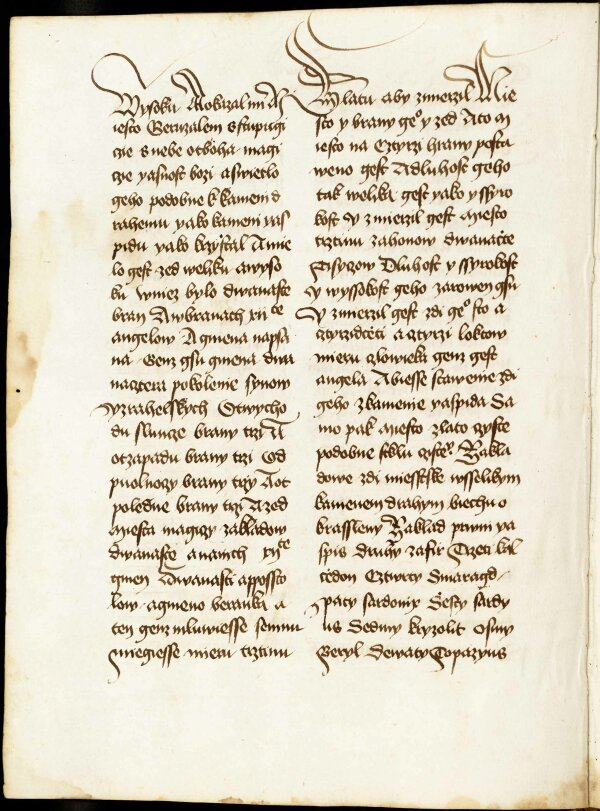 Wysoku A okazal mi M
iesto Geruzalem sstupugi
cze s nebe ot boha magi
cze yasnost bozi a swietlo
geho podobne k kameni d
rahemu yako kameni yas
pidu yako krzysstal A mie
lo gest zed weliku a wyso
ku w niez bylo dwanaste
bran A w branach xii cte
angelow A gmena napsa
na Genz gsu gmena dwa
nacztera pokolenie synow
yzrahelskych Ot wycho
du slunze brany trzi A
ot zapadu brany trzi Od
puolnoczy brany trzy A ot
poledne brany trzi A zed
miesta magiczy zakladow
dwanaste a na nich xii cte
gmen Dwanasti apposto
low a gmeno beranka a
ten genz mluwiesse semnu
gmiegiesse mieru trztinu
Zlatu aby zmierzil Mie
sto y brany geo y zed A to m
iesto na cztyrzi hrany posta
weno gest A dluhost geho
tak welika gest yako y ssyro
kost y zmierzil gest miesto
trztinu za honow dwanacte
Tisyczow Dluhost y ssyrokost
y wyssokost geho zarowen gsu
Y zmierzil gest zdi geo sto a
cztyrzidceti a cztyrzi loktow
mieru czlowieka genz gest
angela A biesse stawenie zdi
geho z kamenie yaspida Sa
mo pak miesto zlato czyste
podobne sklu czistemu Zakla
dowe zdi miestske wsselikym
kamenem drahym biechu o
krassleny Zaklad prwni ya
spis druhy zafir Trzeti kal
cedon Cztwrty Smaragd
Paty sardonix Ssesty sardy
us Sedmy kryzolit Osmy
Geryl Dewaty Topazyus